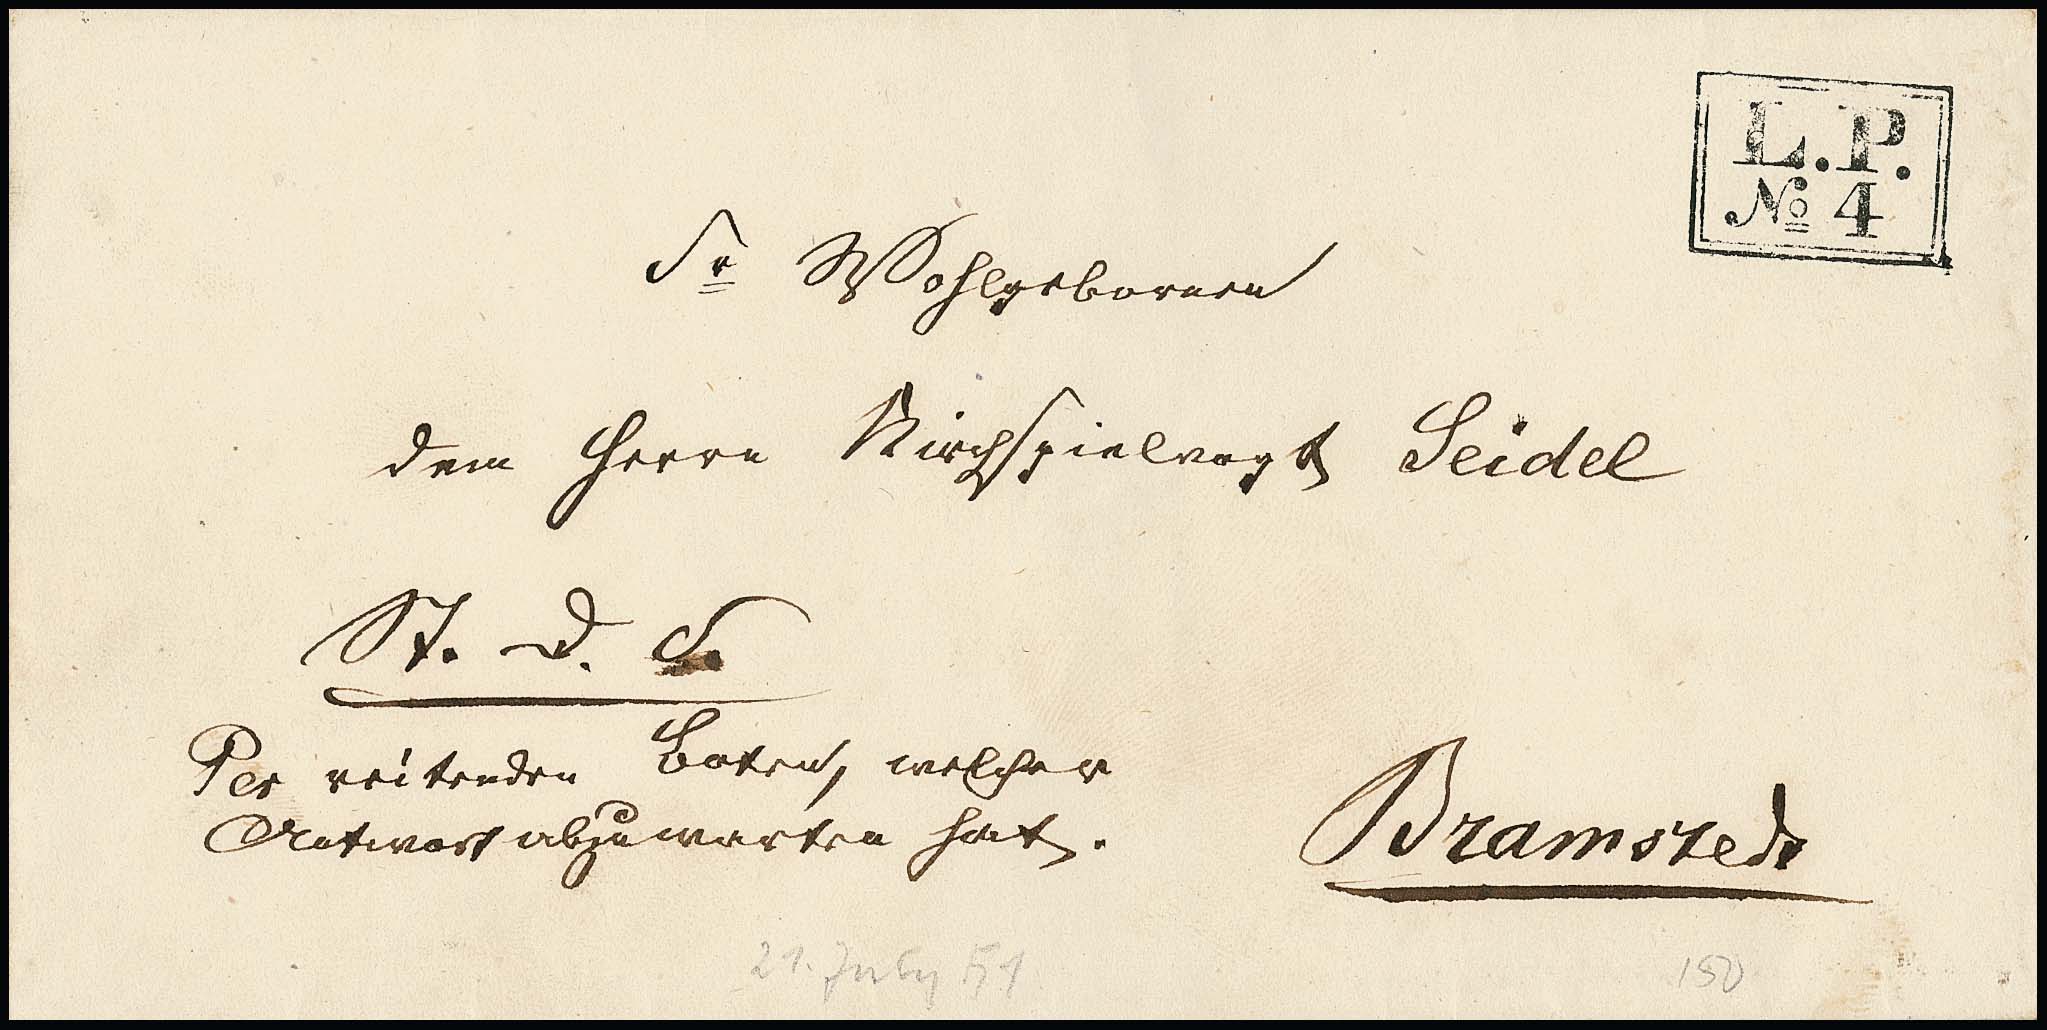 L.P.
No 4
Sr Wohlgebornen
dem Herrn Kirchspielvogt Seidel
St. D. S.
Per reitenden Boten, welcher
Antwort abzuwarten hat.
Bramstedt
21. July 51
150